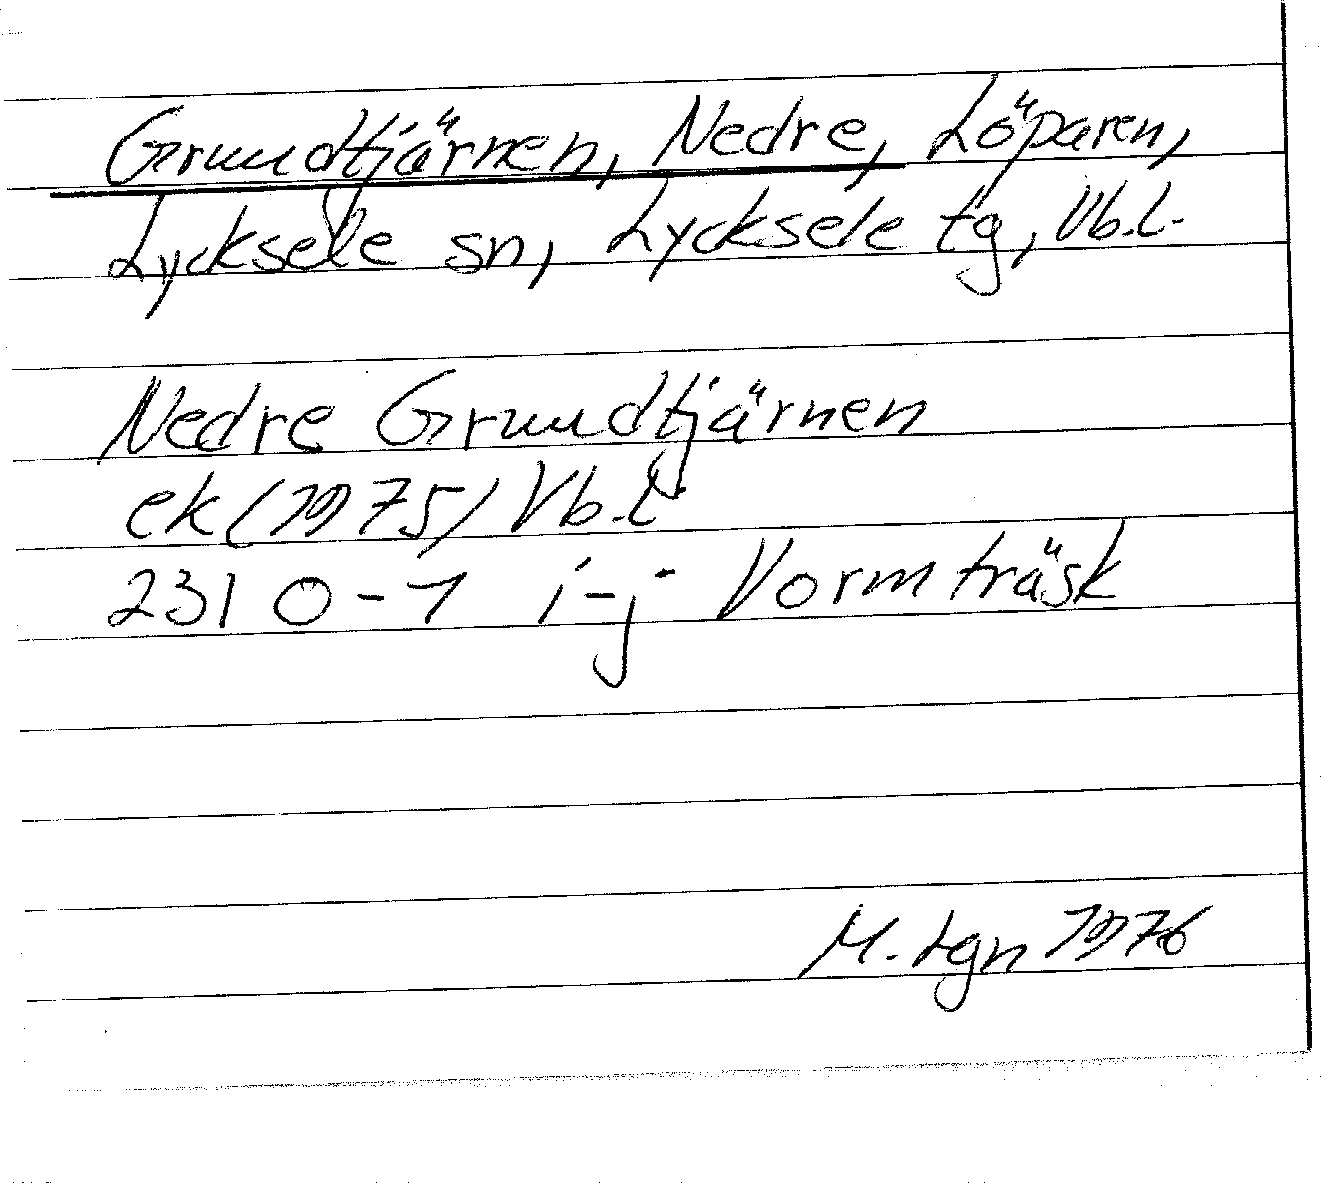 Grundtjärnen, Nedre, Löparen,
Lycksele sn, Lycksele tg, Vb.l.
Nedre Grundtjärnen
ek (1975) Vb.l
231 0-1 i-j Vormträsk
M. Lgn 1976